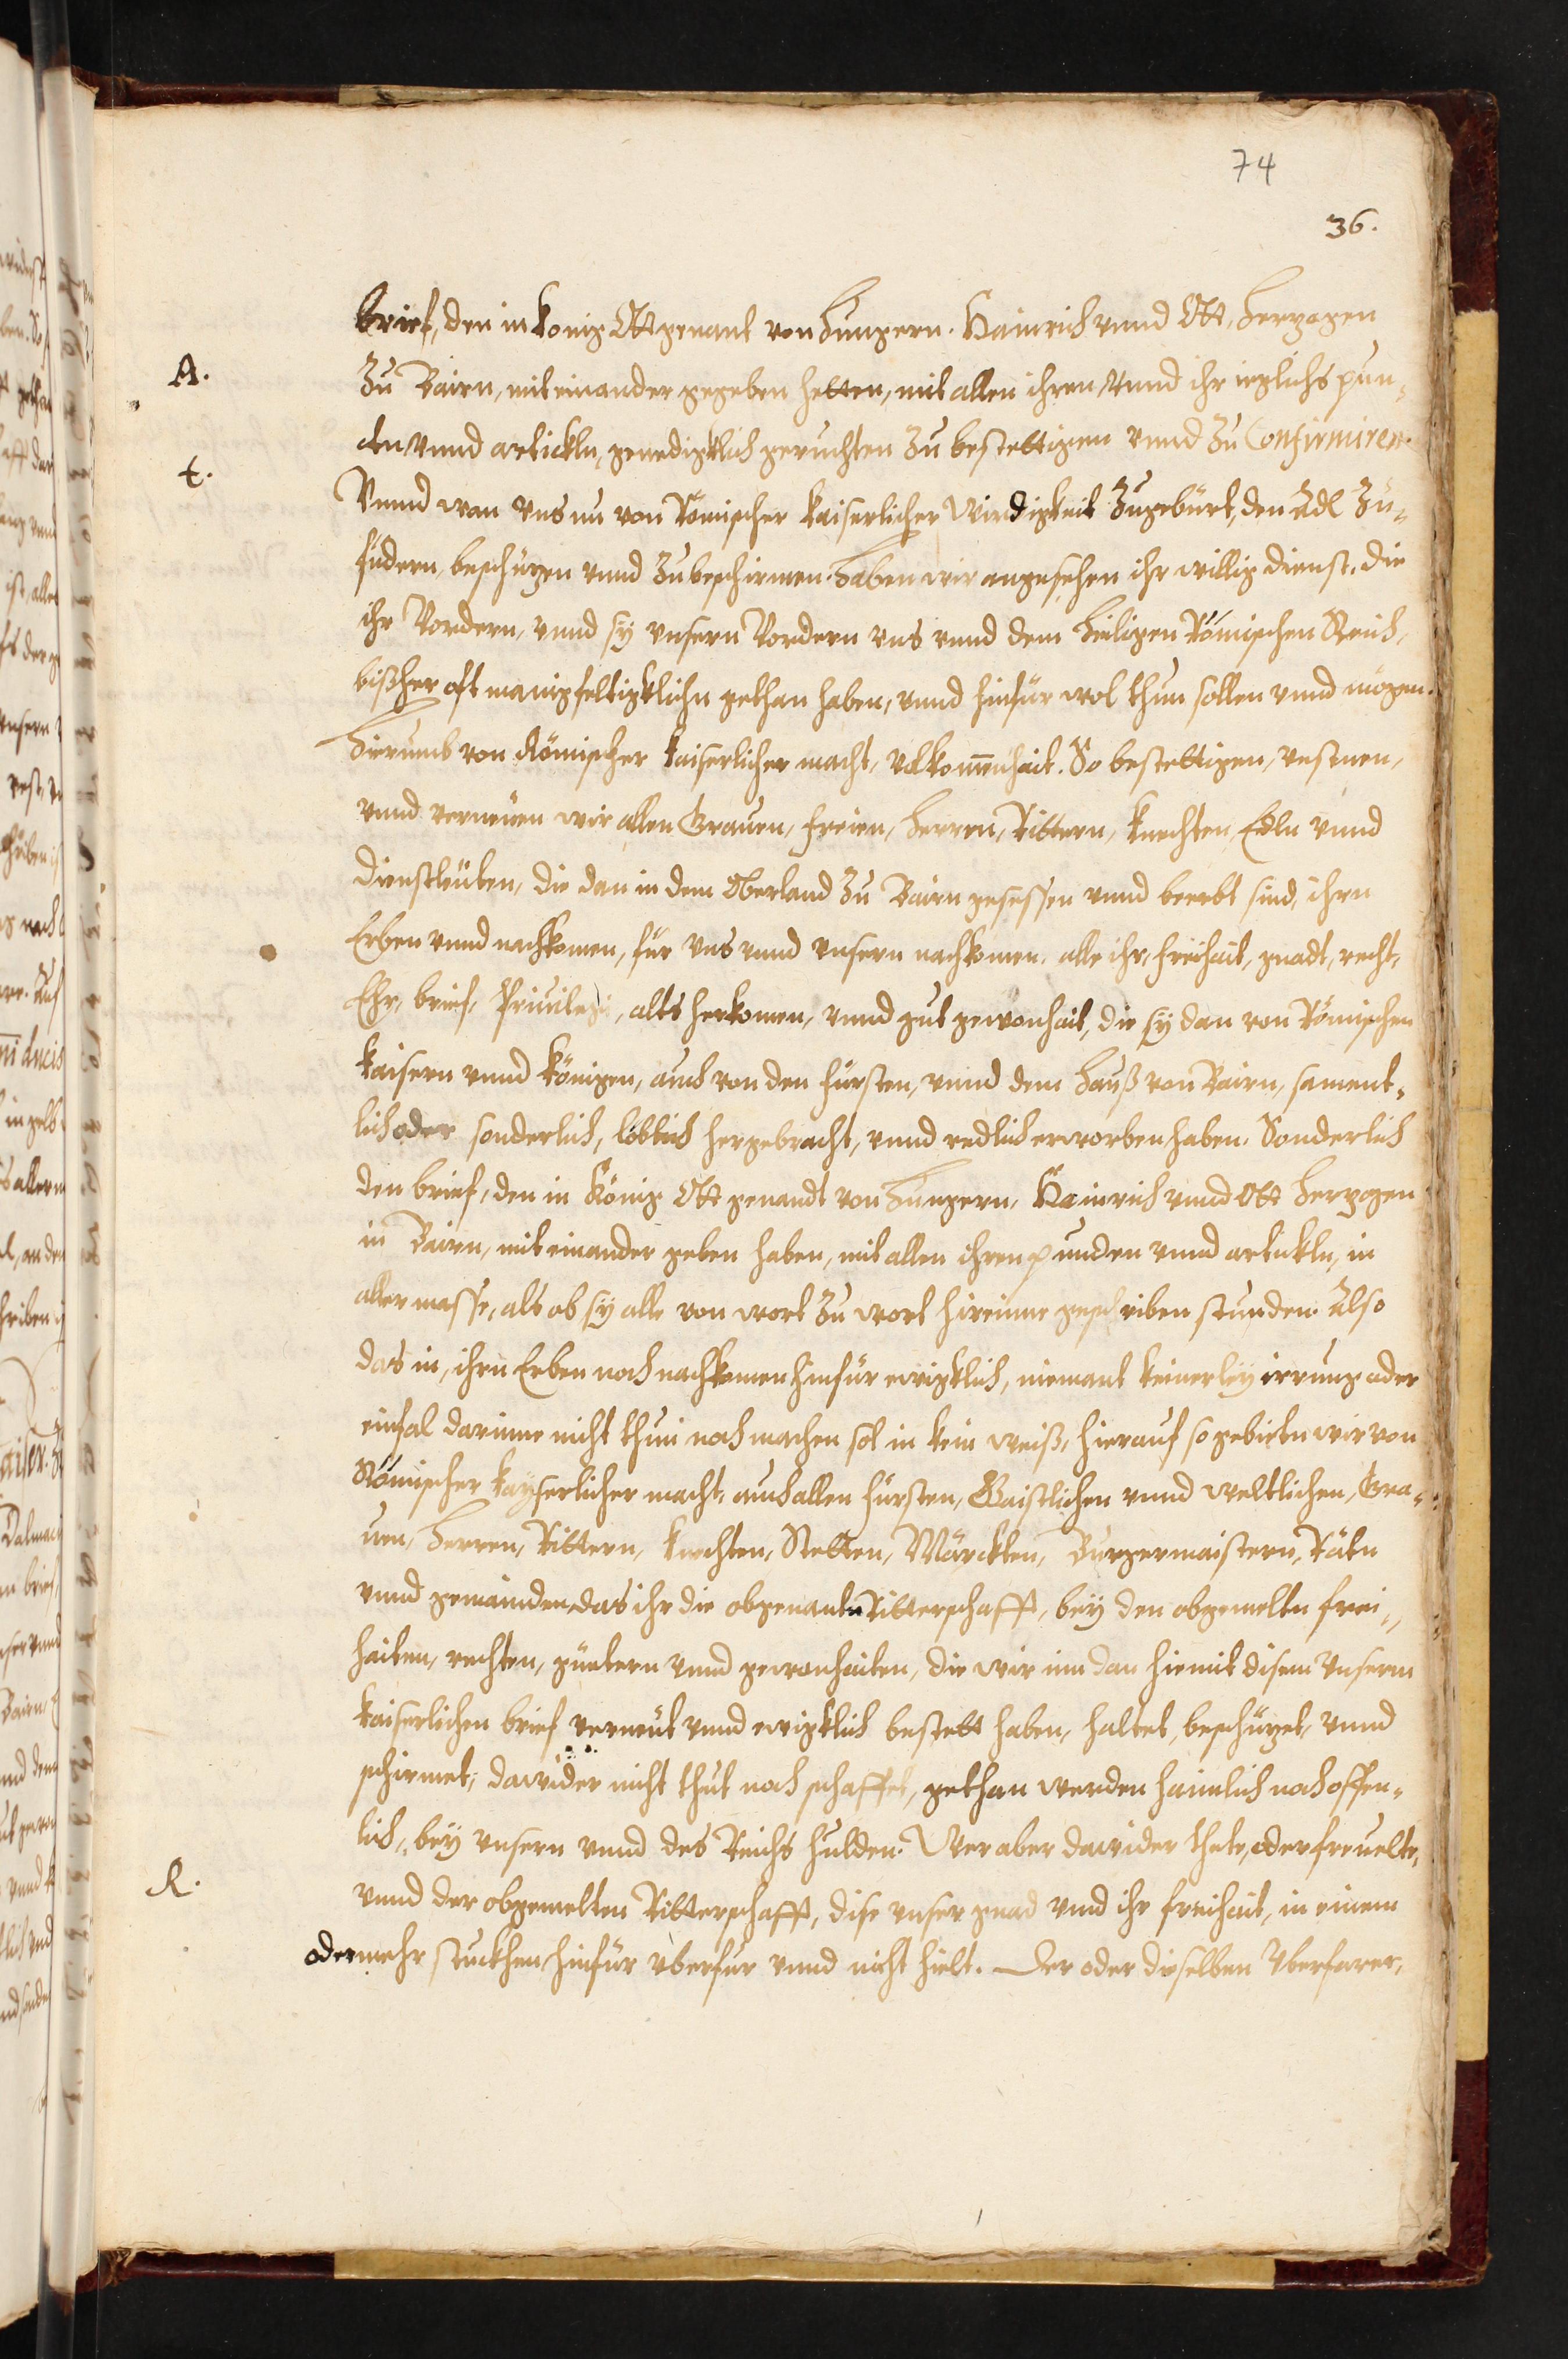 74
36.
brief, den in konig Ott genant von Hungern. Hainrich vnnd Ott, Herzogen
A.
Zu Bairn, mit einander gegeben hetten, mit allen ihren vnnd ihr ieglichs pun¬
t.
cten vnnd artickln, genedigklich geruchten zu bestettigen vnnd zu Confirmiren.
Vnnd wan vns nu von Römischer kaiserlicher Wirdigkeit zugebürt, den Adl zu¬
fudern, beschuzen vnnd zubeschirmen. Haben wir angesehen ihr willig dienst, die
ihr Vordern, vnnd sy vnsern Vordern vns vnnd dem heiligen Römischen Reich,
bißher oft manigfeltigklichn gethan haben, vnnd hinfür wol thun sollen vnnd mögen.
Hierumb von Römischer kaiserlicher macht, volkom̅enhait. So bestettigen, vestnen,
vnnd verneuen wir allen Grauen, freien, Herren, Rittern, knechten, Edln vnnd
dienstleuten, die dan in dem Oberland zu Bairn gesessen vnnd beerbt sind, ihrn
Erben vnnd nachkomen, für vns vnnd vnsern nachkomen, alle ihr, freihait, gnadt, recht,
Ehr, brief, Priuilegi, alts herkomen, vnnd gut gewonhait, die sy dan von Römischen
kaisern vnnd königen, auch von den fürsten, vnnd dem Hauß von Bairn, sament¬
lich oder sonderlich, löblich hergebracht, vnnd redlich erworben haben. Sonderlich
den brief, den in König Ott genandt von Hungern, Hainrich vnnd Ott Herzogen
in Bairn, mit einander geben haben, mit allen ihren puncten vnnd artickln, in
aller masse, als ob sy alle von wort zu wort hierinne geschriben stunden. Also
das in, ihrn Erben noch nachkomen hinfür ewigklich, niemant keinerley irrung oder
einfal darinne nicht thun noch machen sol in kein weiß, hierauf so gebietn wir von
Römischer kayserlicher macht, auch allen fürsten, Gaistlichen vnnd weltlichen, Gra¬
uen, Herren, Rittern, knechten, Stetten, Märckten, Burgermaistern, Rätn
vnnd gemainden, das ihr die obgenantn Ritterschafft, bey den obgemeltn frei¬
haiten, rechten, güetern vnnd gewonhaiten, die wir inn dan hiemit disem vnserm
kaiserlichen brief verneut vnnd ewigklich bestett haben, haltet, beschüzet, vnnd
schirmet, dawider nicht thut noch schaffet, gethan werden haimlich noch offen¬
lich, bey vnsern vnnd des Reichs hulden. Wer aber dawider thete, oder freuelte,
R.
vnnd der obgemelten Ritterschafft, dise vnser gnad vnnd ihr freihait, in einem
oder mehr stuckhen hinfür vberfur vnnd nicht hielt. Der oder dieselben vberfarer,